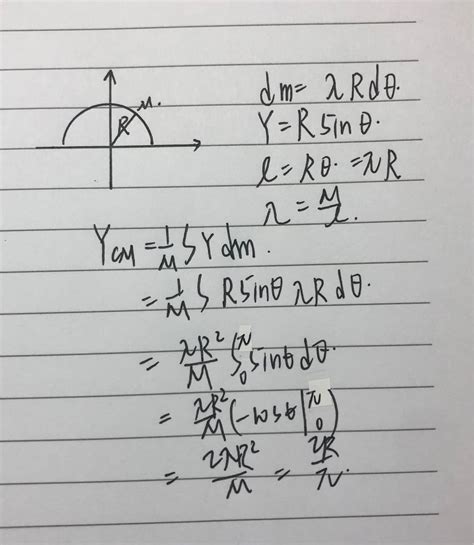 M.
R
dm = λRdθ.
Y = R sinθ.
l = Rθ. = πR
λ = M/l.
Y_CM = 1/M ∫ Y dm.
= 1/M ∫ R sinθ λR dθ.
= λR²/M ∫₀^π sinθ dθ.
= λR²/M (-cosθ |₀^π)
= 2λR²/M = 2R/π.